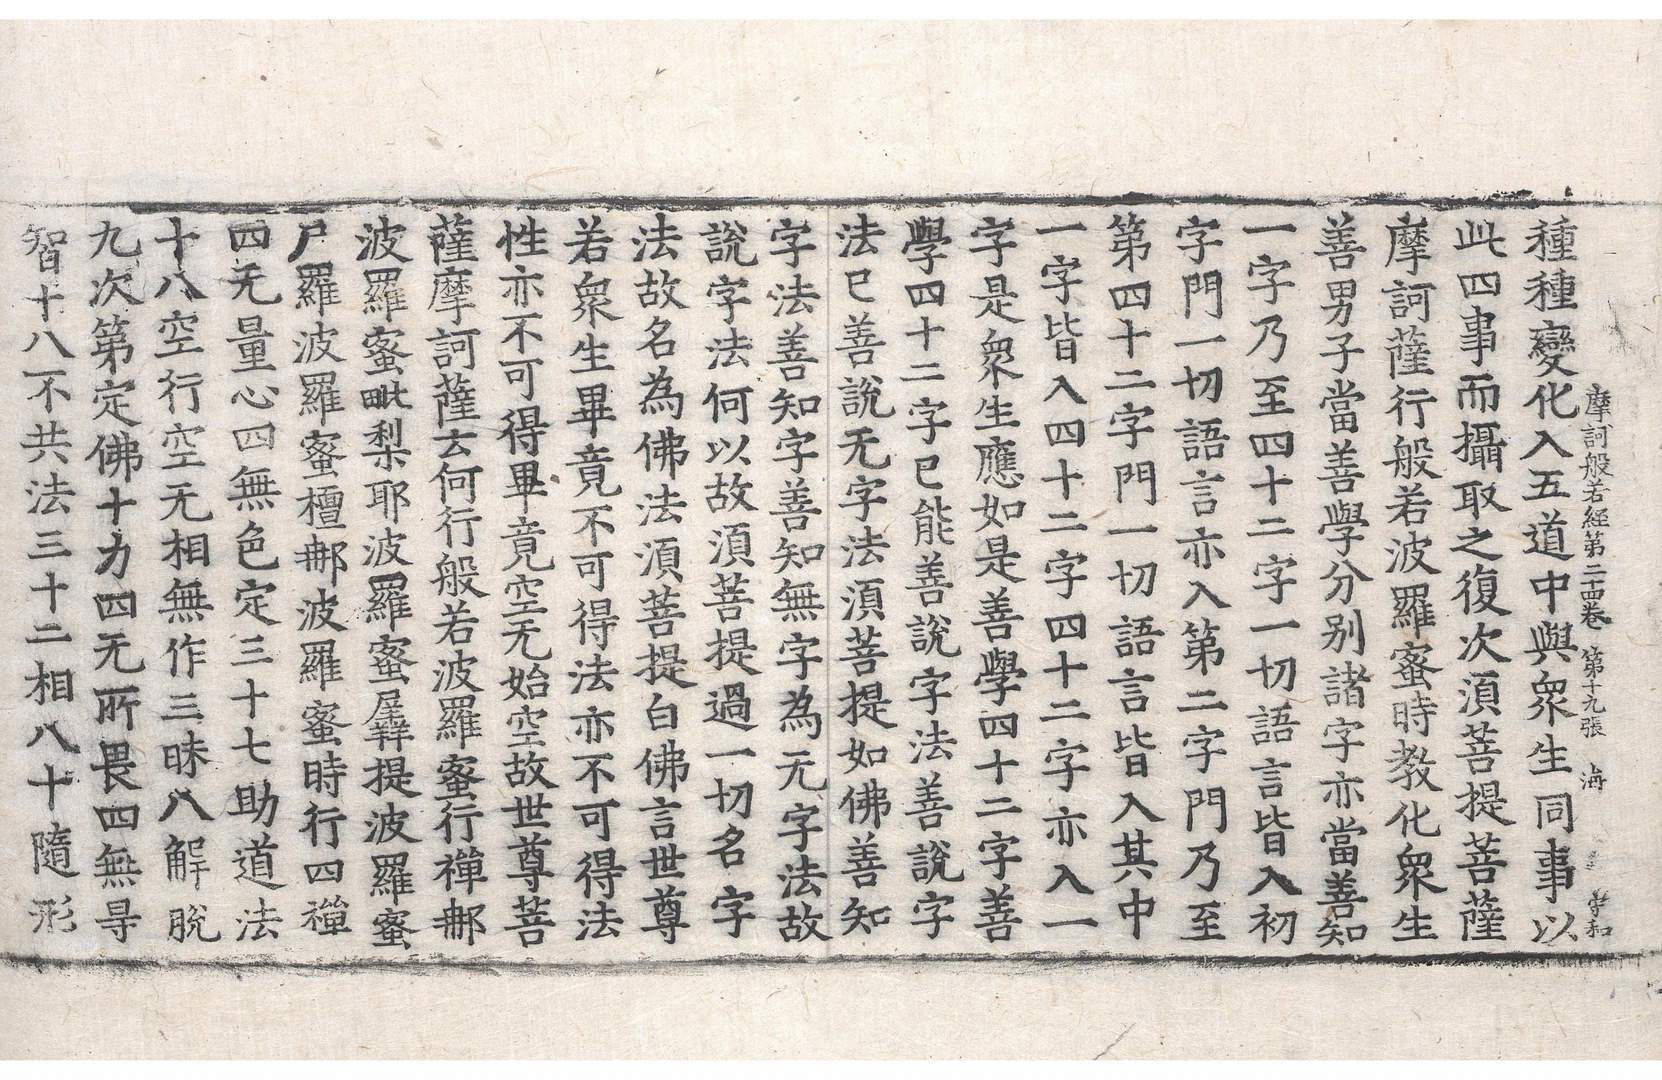 摩訶般若經第二十四卷 第十九張 海
種種變化入五道中與衆生同事以
此四事而攝取之復次湏菩提菩薩
摩訶薩行般若波羅蜜時教化衆生
善男子當善學分別諸字亦當善知
一字乃至四十二字一切語言皆入初
字門一切語言亦入第二字門乃至
第四十二字門一切語言皆入其中
一字皆入四十二字四十二字亦入一
字是衆生應如是善學四十二字善
學四十二字已能善說字法善說字
法已善說无字法湏菩提如佛善知
字法善知字善知無字為无字法故
說字法何以故湏菩提過一切名字
法故名為佛法湏菩提白佛言世尊
若衆生畢竟不可得法亦不可得法
性亦不可得畢竟空无始空故世尊菩
薩摩訶薩云何行般若波羅蜜行禪𨙻
波羅蜜毗梨耶波羅蜜羼提波羅蜜
尸羅波羅蜜檀𨙻波羅蜜時行四禪
四无量心四無色定三十七助道法
十八空行空无相無作三昧八解脫
九次第定佛十力四无所畏四無㝵
智十八不共法三十二相八十隨形